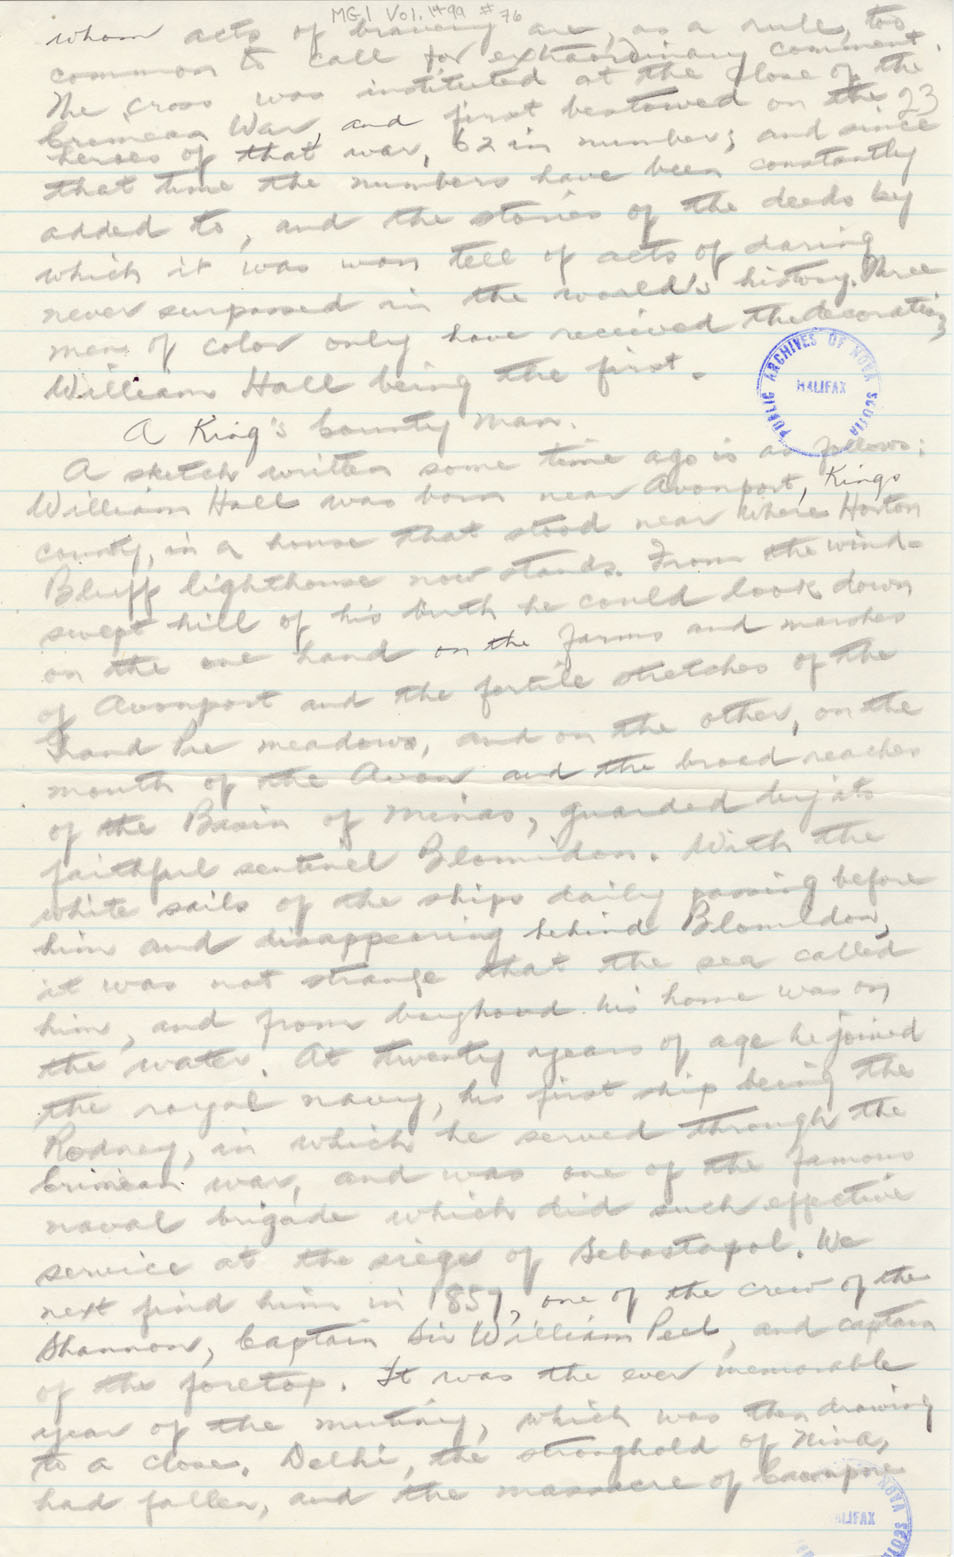 MG1 Vol. 1499 #76
whom acts of bravery are, as a rule, too
common to call for extraordinary comment.
The cross was instituted at the close of the
Crimean War, and first bestowed on the 23
heroes of that war, 62 in number; and since
that time the numbers have been constantly
added to, and the stories of the deeds by
which it was won tell of acts of daring
never surpassed in the world's history. Three
men of color only have received the decoration,
William Hall being the first.
PUBLIC ARCHIVES OF NOVA SCOTIA
HALIFAX
A King's County Man.
A sketch written some time ago is as follows:
William Hall was born near Avonport, Kings
county, in a house that stood near where Horton
Bluff lighthouse now stands. From the wind-
swept hill of his birth he could look down
on the one hand on the farms and marshes
of Avonport and the fertile stretches of the
Grand Pre meadows, and on the other, on the
mouth of the Avon and the broad reaches
of the Basin of Minas, guarded by its
faithful sentinel Blomidon. With the
white sails of the ships daily passing before
him and disappearing behind Blomidon,
it was not strange that the sea called
him, and from boyhood his home was on
the water. At twenty years of age he joined
the royal navy, his first ship being the
Rodney, in which he served through the
Crimean war, and was one of the famous
naval brigade which did such effective
service at the siege of Sebastapol. We
next find him in 1857, one of the crew of the
Shannon, Captain Sir William Peel, and captain
of the foretop. It was the ever memorable
year of the mutiny, which was then drawing
to a close. Delhi, the stronghold of Nina,
had fallen, and the massacre of Cawnpore
NOVA SCOTIA
HALIFAX